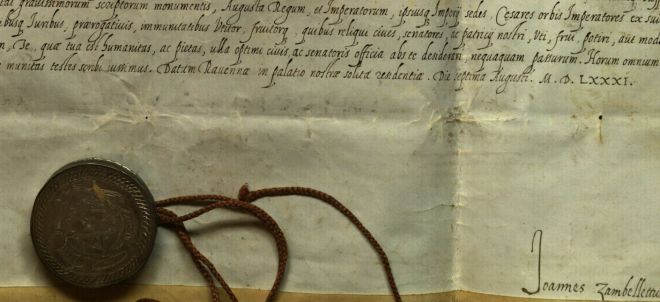 gravissimorum scriptorum monumentis, Augusta Regum, et Imperatorum, ipsiusq Imperij sedes, Cesares orbis Imperatores ex sui
Iuribus, prærogatiuis, immunitatibus Vtitor, fruitorq, quibus reliqui ciues, senatores, ac patricij nostri, Vti, frui, potiri, aut mod
Te, qua tua est humanitas, ac pietas, ulla optimi ciuis, ac senatoris officia abs te desiderari, nequaquam passurum. Horum omnium
munitas testes scribi iussimus. Datum Rauennæ in palatio nostræ solitæ residentiæ. Die septima Augusti. M. D. LXXXI.
Joannes Zambellettu